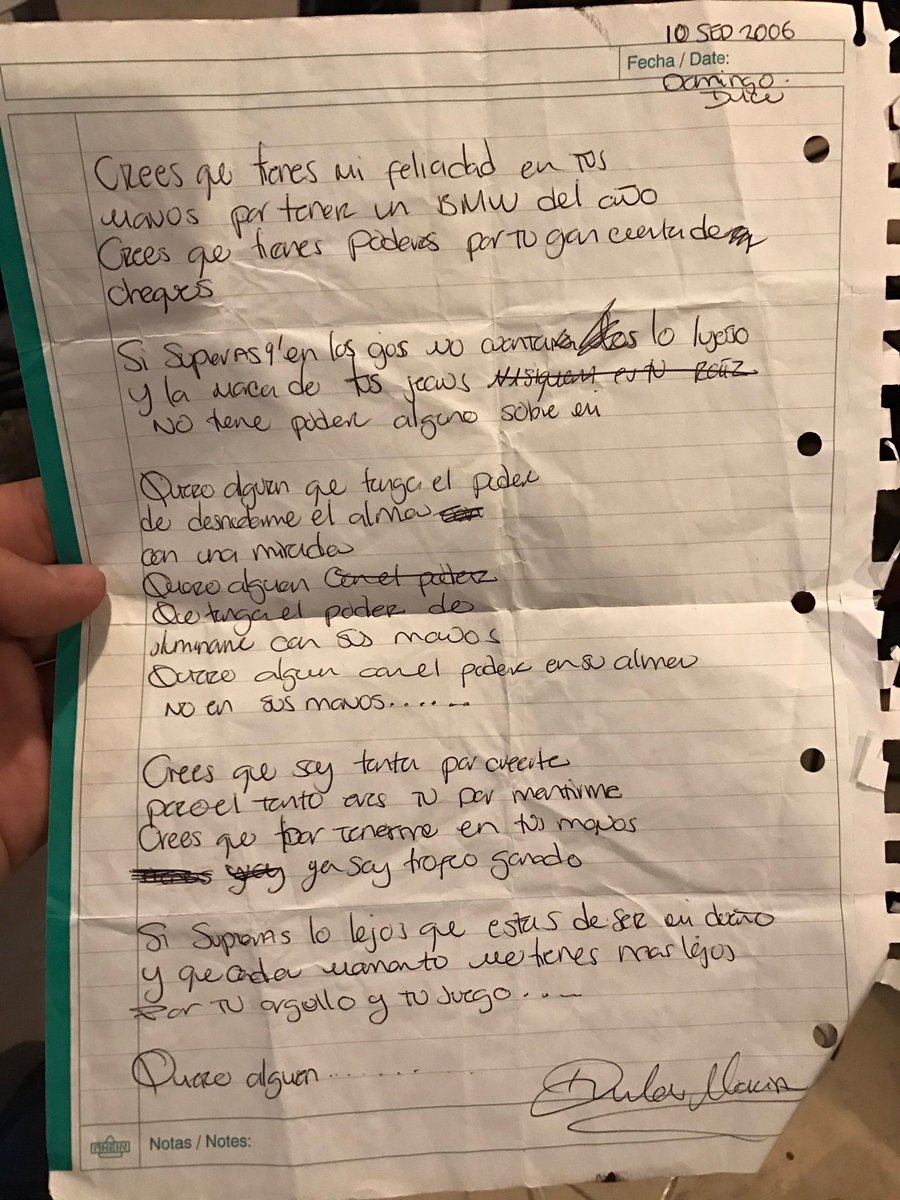 10 SEP 2006
Fecha / Date:
Domingo.
Dulce
Crees que tienes mi felicidad en tus
manos por tener un BMW del año
Crees que tienes poderes por tu gan cuenta de
cheques
Si superas q' en los ojos no lo lujoso
y la marca de tus jeans ni siquiera es tu
No tiene poder alguno sobre mi
Quiero alguien que tenga el poder
de desnudarme el alma con
con una mirada
Quiero alguien con el poder
Que tenga el poder de
iluminarme con sus manos
Quiero alguien con el poder en su alma
NO en sus manos......
Crees que soy tonta por creerte
pero el tonto eres tu por mentirme
Crees que por tenerme en tus manos
ya soy trofeo ganado
Si supieras lo lejos que estas de ser mi dueño
y que cada momento me tienes mas lejos
Por tu orgullo y tu juego....
Quiero alguien..........
Dulce Maria
RHEIN
Notas / Notes: